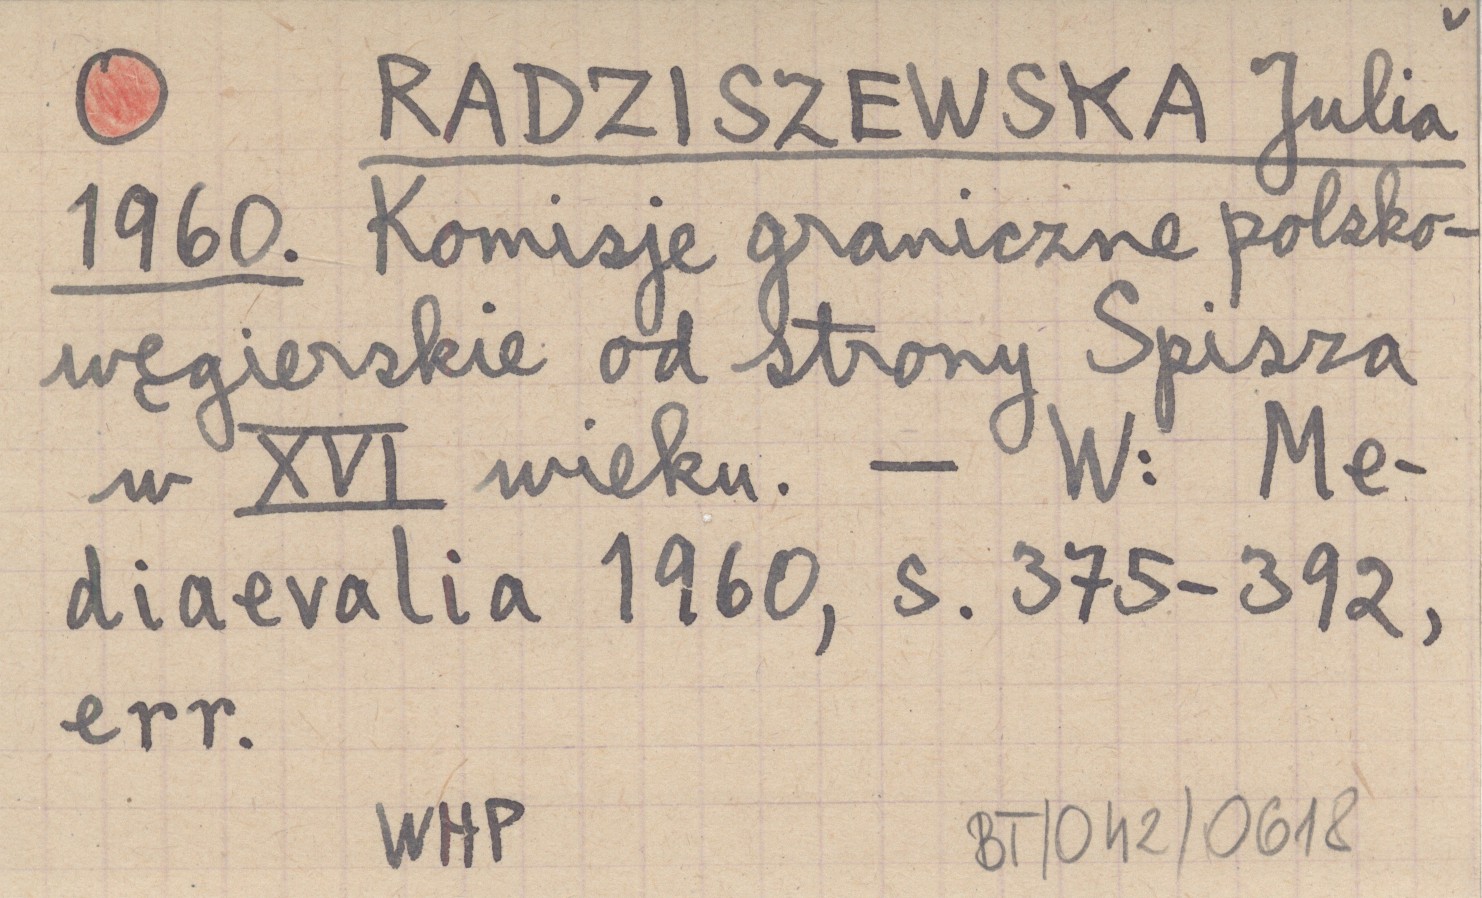 RADZISZEWSKA Julia
1960. Komisje graniczne polsko-
węgierskie od strony Spisza
w XVI wieku. — W: Me-
diaevalia 1960, s. 375-392,
err.
WHP
BT/042/0618